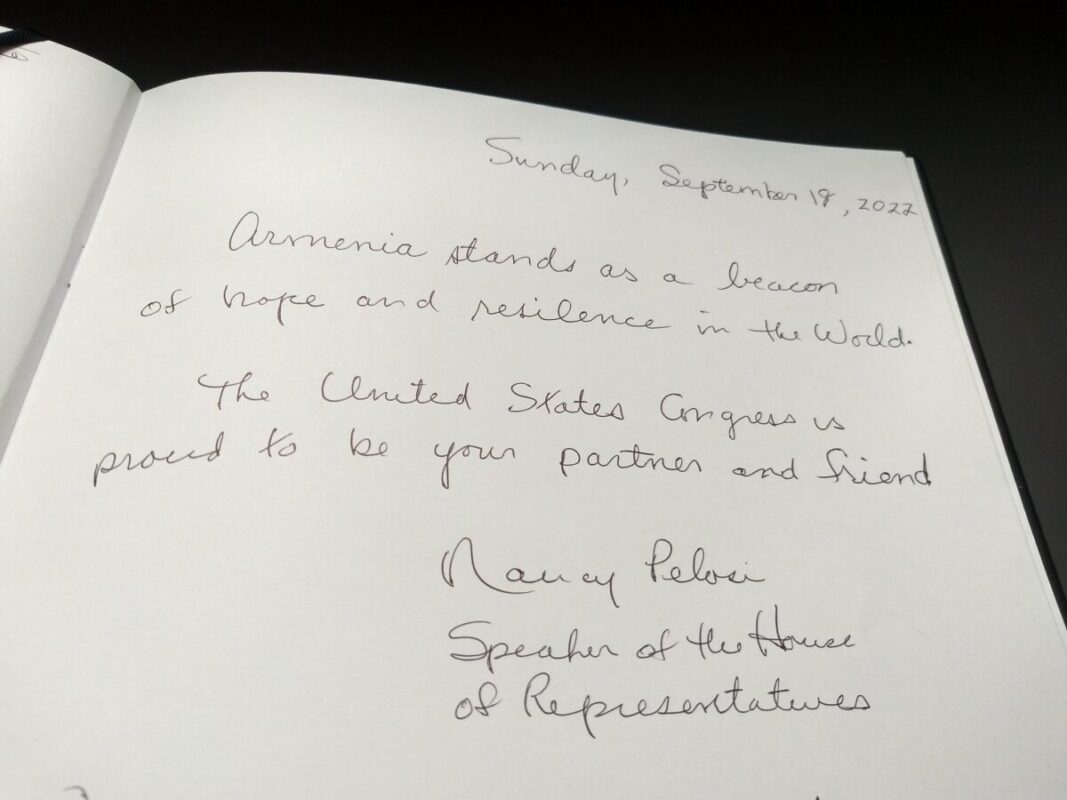 Sunday, September 18, 2022
Armenia stands as a beacon
of hope and resilence in the World.
The United States Congress is
proud to be your partner and friend
Nancy Pelosi
Speaker of the House
of Representatives